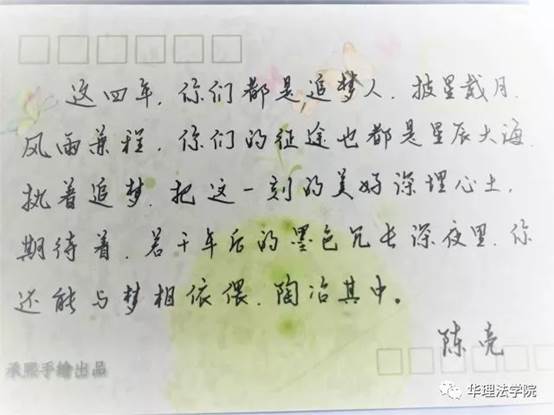 这四年,你们都是追梦人,披星戴月,
风雨兼程,你们的征途也都是星辰大海,
执着追梦,把这一刻的美好深埋心土,
期待着,若干年后的墨色冗长深夜里,你
还能与梦相依偎,陶冶其中。
陈亮
承熙手绘出品
华理法学院